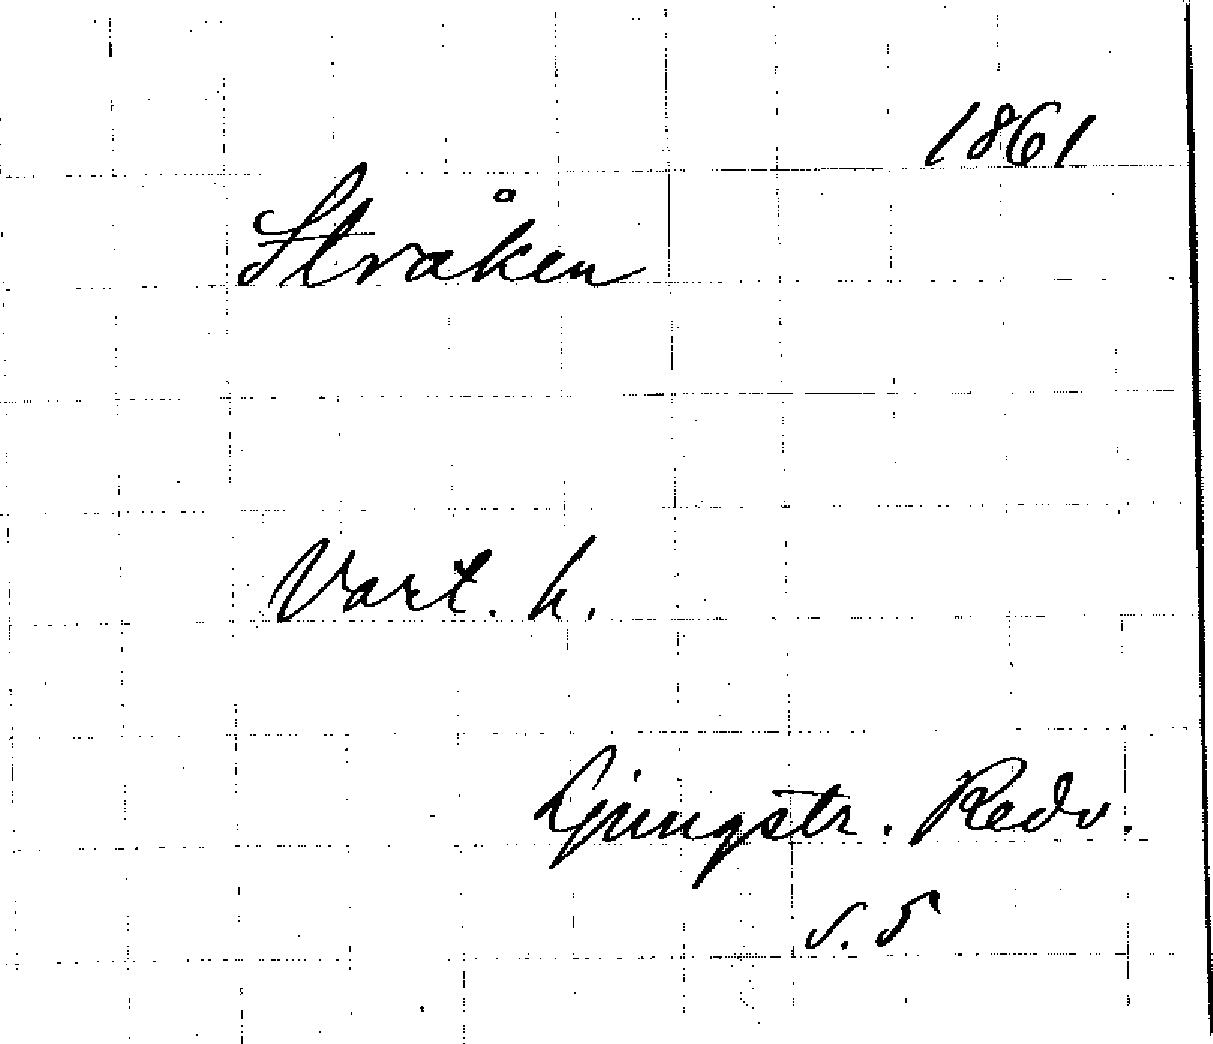 1861
Stråken
Vart. h.
Ljungstr. Redv.
s. 5